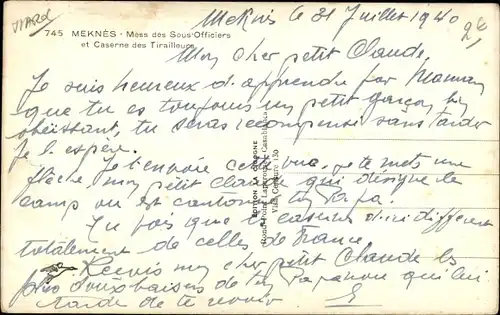 Maroc
2€
745 MEKNÈS - Mess des Sous-Officiers
et Caserne des Tirailleurs
Meknès le 31 Juillet 1940
Mon cher petit Claude,
Je suis heureux d'apprendre par Maman
que tu es toujours un petit garçon
obéissant, tu seras récompensé sans tarder
je l'espère.
Je t'envoie cette vue, je te mets une
flèche mon petit Claude qui désigne le
camp où est cantonné ton Papa.
Tu vois que les casernes d'ici diffèrent
totalement de celles de France.
Reçois mon cher petit Claude les
plus doux baisers de ton Papa qui lui
tarde de te revoir